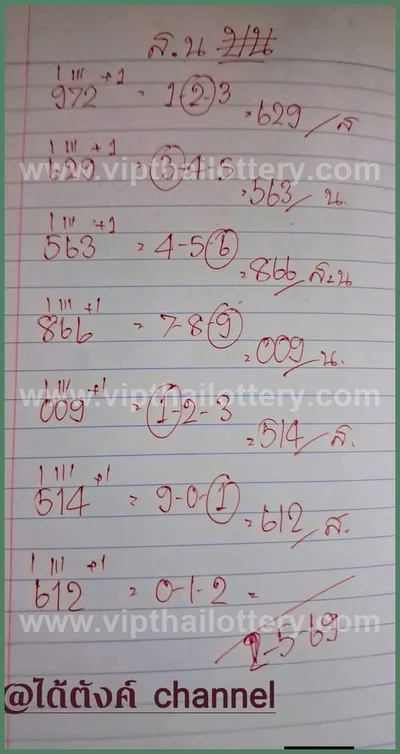 ส.น บน
| ||| +1
972 = 1-2-3
=629/ส
| ||| +1
www.vipthailottery.com
629 = 3-4-5
=563/น.
| ||| +1
563 = 4-5-6
=866/ส.น
| ||| +1
866 = 7-8-9
=009/น.
| ||| +1
www.vipthailottery.com
009 = 1-2-3
=514/ส.
| |||| +1
514 = 9-0-1
=612/ส.
| ||| +1
612 = 0-1-2 =
www.vipthailottery.com
2-5-69
@ได้ตังค์ channel